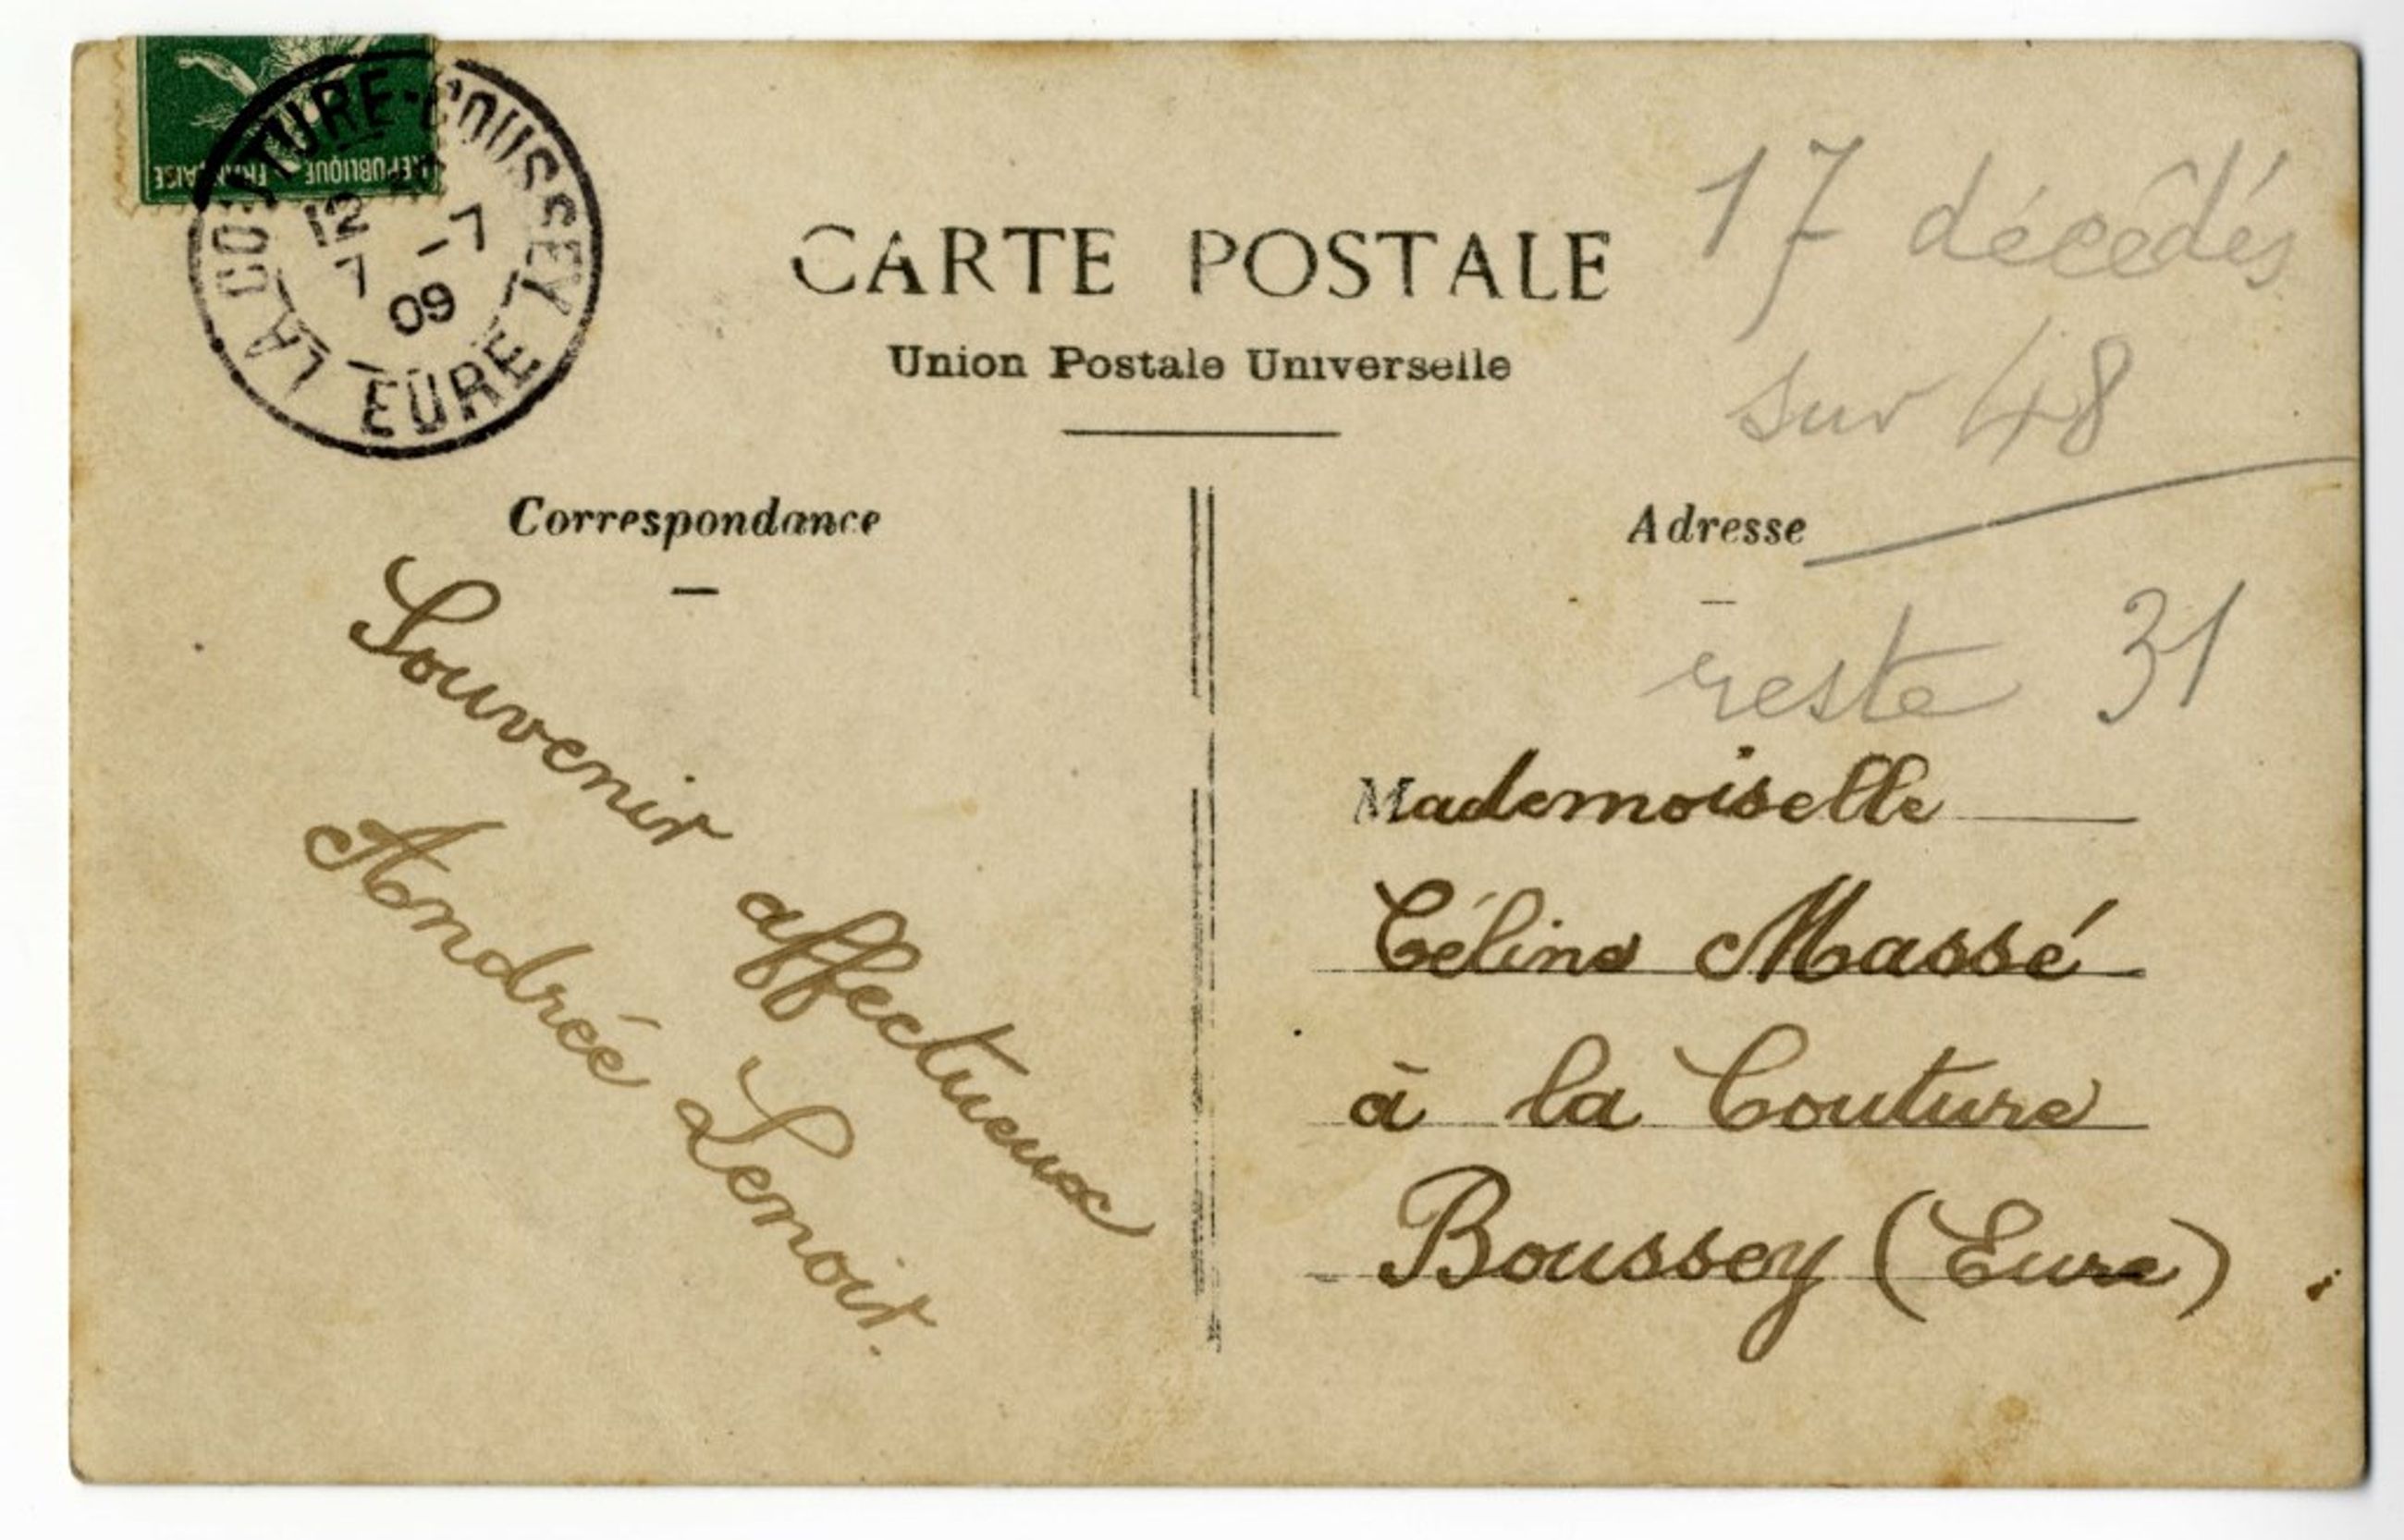 RÉPUBLIQUE FRANÇAISE
LA COUTURE-BOUSSEY
12
7 -7
09
EURE
CARTE POSTALE
Union Postale Universelle
17 décédés
sur 48
reste 31
Correspondance
Adresse
Souvenir affectueux
Andrée Lenoir.
Mademoiselle
Céline Massé
à la Couture
Boussey (Eure)